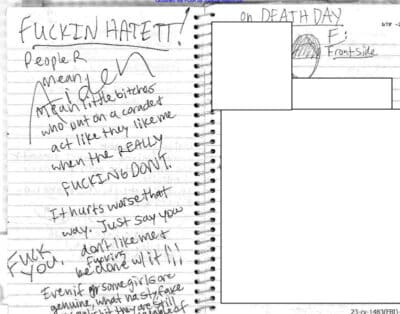 FUCKIN HATE IT!
People R
mean
Aiden
Mean little bitches
who put on a
act like they like me
when the REALLY
FUCKING DON'T.
It hurts worse that
way. Just say you
don't like me &
fucking
be done w/it!!!
FUCK
YOU.
Even if some girls are
genuine, what nasty, fake
they are still
on DEATH DAY
F:
Frontside